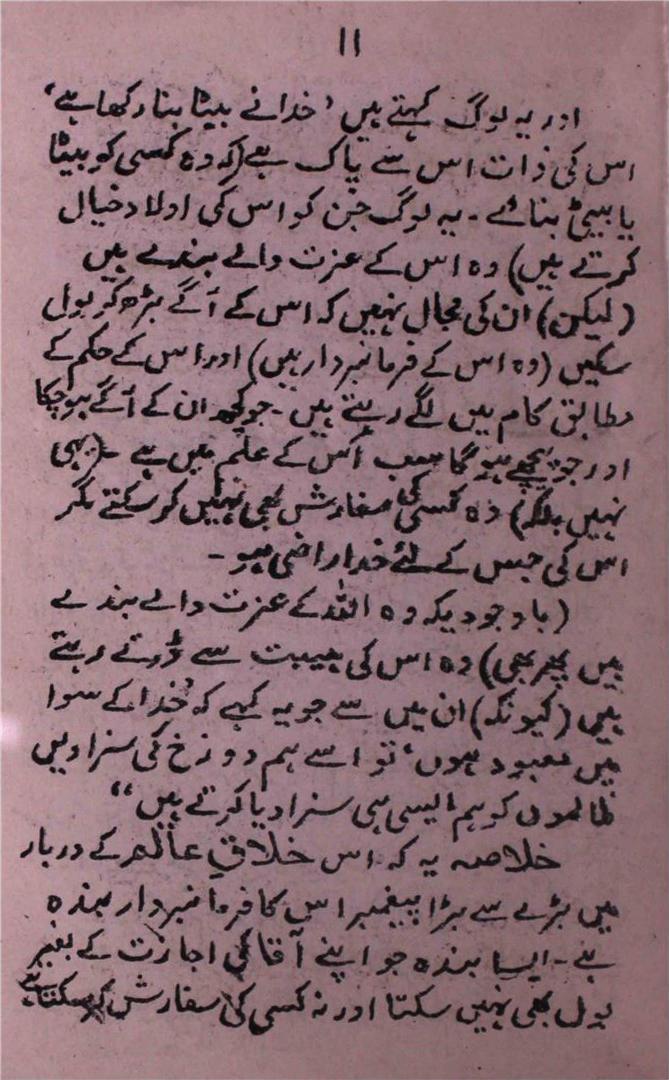 ۱۱
اور یہ لوگ کہتے ہیں ’خدا نے بیٹا بنا رکھا ہے‘
اس کی ذات اس سے پاک ہے (کہ وہ کسی کو بیٹا
یا بیٹی بنائے۔ یہ لوگ جن کو اس کی اولاد خیال
کرتے ہیں) وہ اس کے عزت والے بندے ہیں
(لیکن) ان کی مجال نہیں کہ اس کے آگے بڑھ کر بول
سکیں (وہ اس کے فرمانبردار ہیں) اور اس کے حکم کے
مطابق کام میں لگے رہتے ہیں۔ جو کچھ ان کے آگے ہو چکا
اور جو پیچھے ہو گا سب اُس کے علم میں ہے۔ (یہی
نہیں بلکہ) وہ کسی کی سفارش بھی نہیں کر سکتے مگر
اس کی جس کے لئے خدا راضی ہو۔
(باوجودیکہ وہ اللہ کے عزت والے بندے
ہیں پھر بھی) وہ اس کی ہیبت سے ڈرتے رہتے
ہیں (کیونکہ) ان میں سے جو یہ کہے کہ ’خدا کے سوا
میں معبود ہوں‘ تو اسے ہم دوزخ کی سزا دیں
ظالموں کو ہم ایسی ہی سزا دیا کرتے ہیں“
خلاصہ یہ کہ اس خلاقِ عالم کے دربار
میں بڑے سے بڑا پیغمبر اس کا فرمانبردار بندہ
ہے۔ ایسا بندہ جو اپنے آقا کی اجازت کے بغیر
بول بھی نہیں سکتا اور نہ کسی کی سفارش کر سکتا ہے